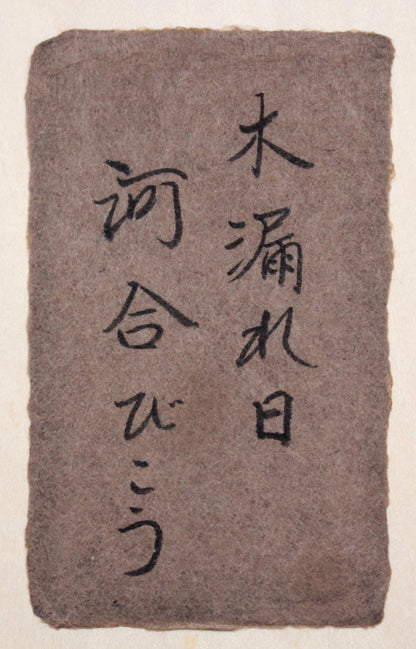 木漏れ日
河合びこう